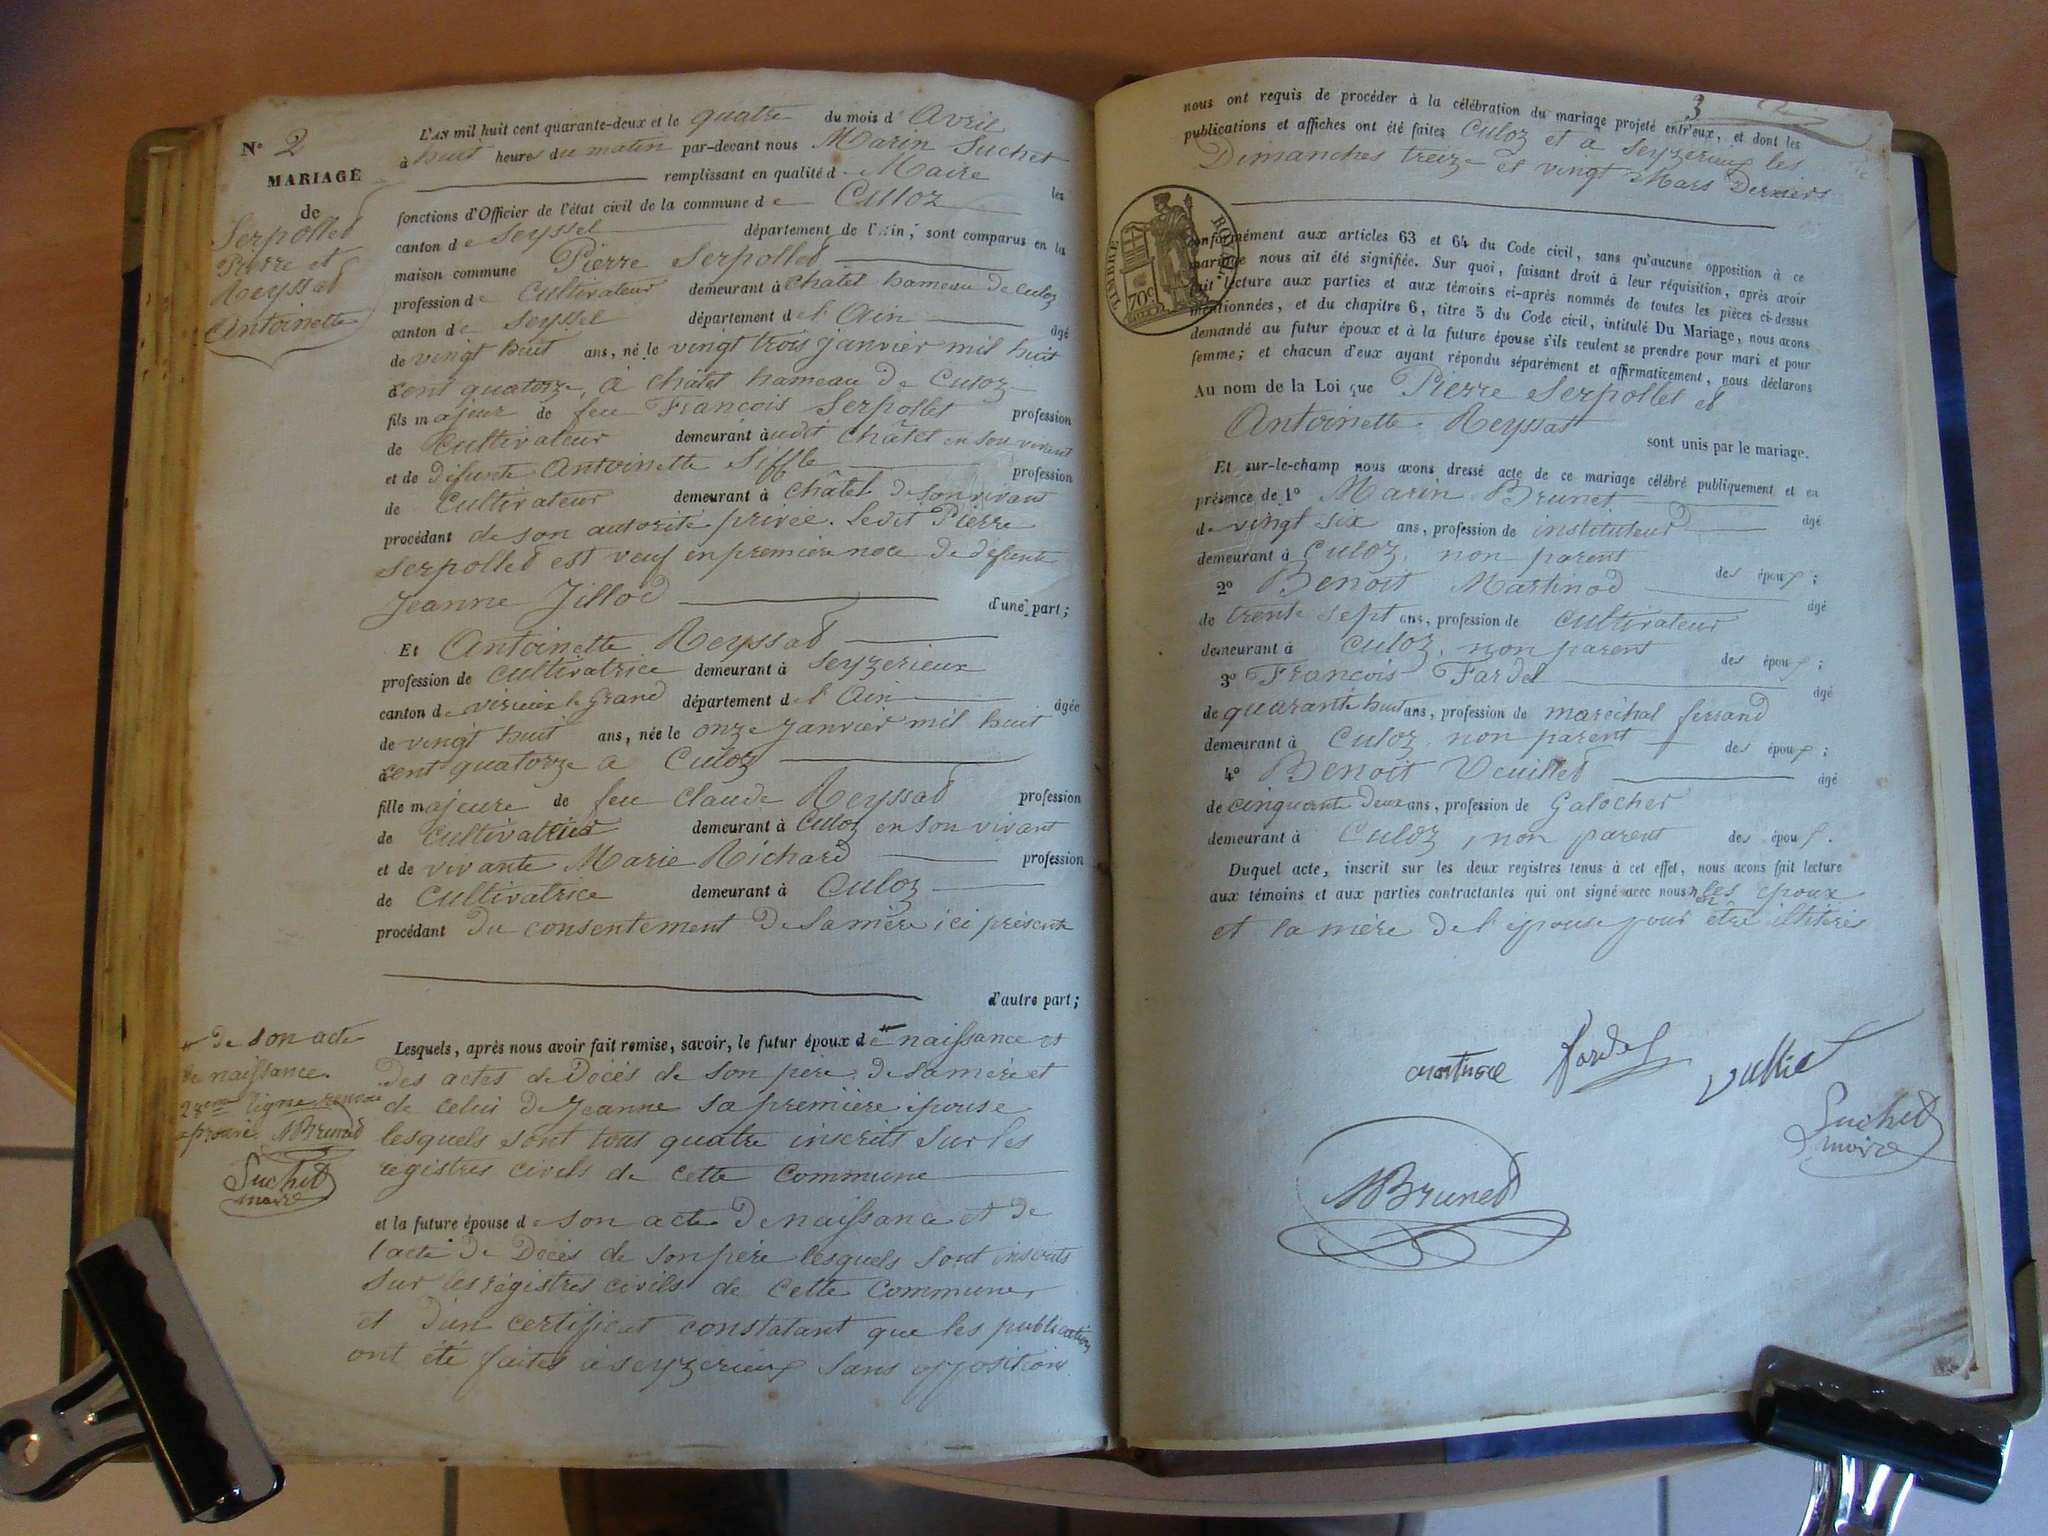 N° 2
MARIAGE
de
Serpollet
Pierre et
Reyssat
Antoinette
L'AN mil huit cent quarante-deux et le quatre du mois d' Avril
à huit heures du matin par-devant nous Marin Suchet
remplissant en qualité de Maire les
fonctions d'Officier de l'état civil de la commune de Culoz
canton de Seyssel département de l'Ain, sont comparus en la
maison commune Pierre Serpollet
profession de Cultivateur demeurant à Châtel hameau de Culoz
canton de Seyssel département de l'Ain âgé
de vingt huit ans, né le vingt trois janvier mil huit
cent quatorze, à Châtel hameau de Culoz
fils majeur de feu François Serpollet profession
de Cultivateur demeurant audit Châtel en son vivant
et de défunte Antoinette Siffle profession
de Cultivateur demeurant à Châtel de son vivant
procédant de son autorité privée. Ledit Pierre
Serpollet est veuf en première noce de défunte
Jeanne Jillod d'une part;
Et Antoinette Reyssat
profession de Cultivatrice demeurant à Seyzerieux
canton de virieux le Grand département de l'Ain âgée
de vingt huit ans, née le onze janvier mil huit
cent quatorze à Culoz
fille majeure de feu Claude Reyssat profession
de Cultivateur demeurant à Culoz en son vivant
et de vivante Marie Richard profession
de Cultivatrice demeurant à Culoz
procédant du consentement de sa mère ici présente
d'autre part;
Lesquels, après nous avoir fait remise, savoir, le futur époux de naissance et
des actes de Décès de son père, de sa mère et
de celui de Jeanne sa première épouse
lesquels sont tous quatre inscrits sur les
registres civils de cette Commune
et la future épouse de son acte de naissance et de
l'acte de Décès de son père lesquels sont inscrits
sur les régistres civils de cette Commune,
et d'un certificat constatant que les publications
ont été faites à Seyzerieux sans opposition
de son acte
de naissance.
28eme ligne renvoi
approuvé. MBrunet
Suchet
maire
3
nous ont requis de procéder à la célébration du mariage projeté entr'eux, et dont les
publications et affiches ont été faites Culoz et à Seyzerieux les
Dimanches treize et vingt Mars Derniers
TIMBRE ROYAL
70c
conformément aux articles 63 et 64 du Code civil, sans qu'aucune opposition à ce
mariage nous ait été signifiée. Sur quoi, faisant droit à leur réquisition, après avoir
fait lecture aux parties et aux témoins ci-après nommés de toutes les pièces ci-dessus
mentionnées, et du chapitre 6, titre 5 du Code civil, intitulé Du Mariage, nous avons
demandé au futur époux et à la future épouse s'ils veulent se prendre pour mari et pour
femme; et chacun d'eux ayant répondu séparément et affirmativement, nous déclarons
Au nom de la Loi que Pierre Serpollet et
Antoinette Reyssat sont unis par le mariage.
Et sur-le-champ nous avons dressé acte de ce mariage célébré publiquement et en
présence de 1° Marin Brunet âgé
de vingt six ans, profession de instituteur
demeurant à Culoz, non parent des époux;
2° Benoit Martinod âgé
de trente sept ans, profession de cultivateur
demeurant à Culoz, non parent des époux;
3° François Fardel âgé
de quarante huit ans, profession de maréchal ferrand
demeurant à Culoz non parent des époux;
4° Benoit Veuillet âgé
de cinquante deux ans, profession de Galocher
demeurant à Culoz, non parent des époux.
Duquel acte, inscrit sur les deux registres tenus à cet effet, nous avons fait lecture
aux témoins et aux parties contractantes qui ont signé avec nous non les époux
et la mère de l'épouse pour être illitérés
Fardel
Suchet
maire
MBrunet